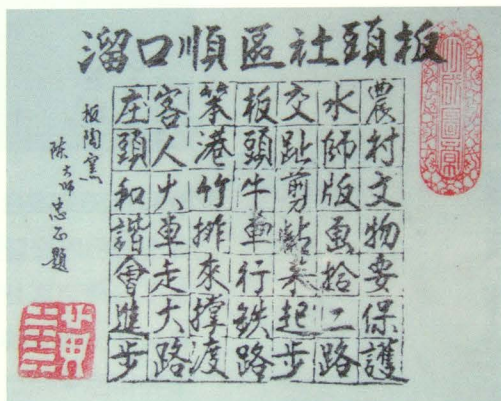 板頭社區順口溜
農村文物要保護
水師版畫拾二路
交趾剪黏起步
板頭牛車行鉄路
笨港竹排來撐渡
客人火車走大路
庄頭和諧會進步
板陶窯
陳忠正題